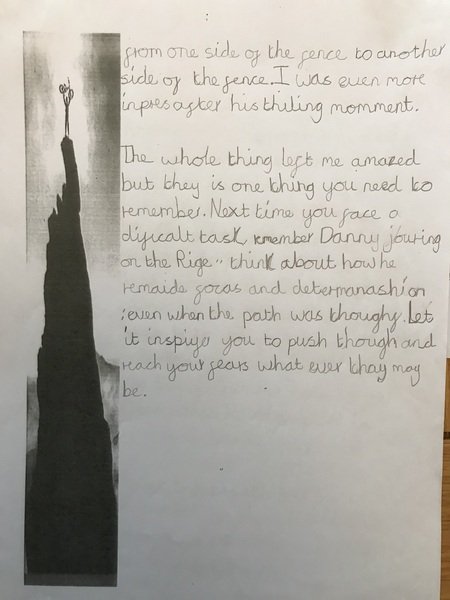 from one side of the fence to another
side of the fence. I was even more
inpres after his thiling momment.
The whole thing left me amazed
but they is one thing you need to
remember. Next time you face a
dificalt task, remember Danny jouring
on the Rige" think about how he
remaide focas and determanashion
even when the path was thoughy. Let
it inspiye you to push though and
reach your fears what ever thay may
be.